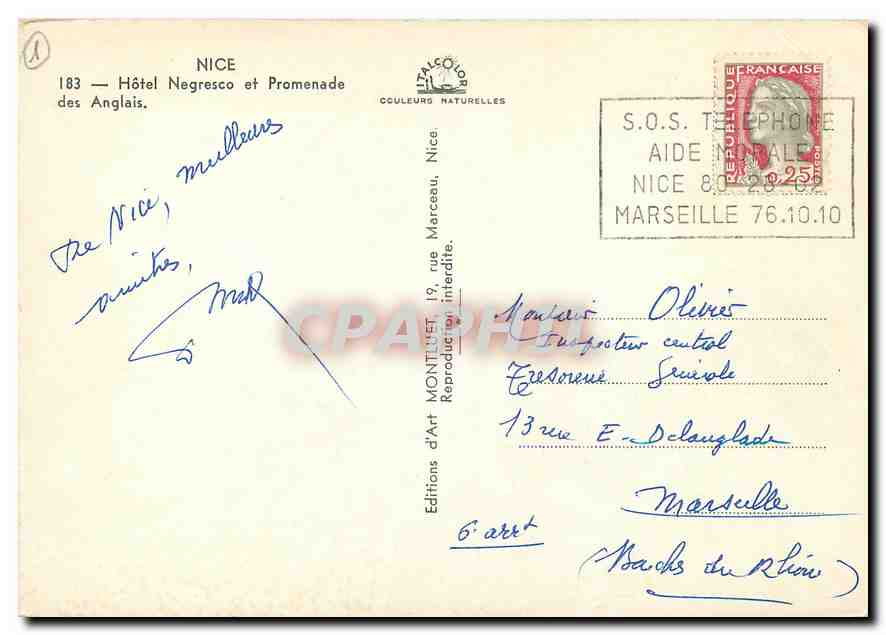 1
NICE
183 — Hôtel Negresco et Promenade
des Anglais.
ITALCOLOR
COULEURS NATURELLES
REPUBLIQUE FRANÇAISE
POSTES
0,25
S.O.S. TELEPHONE
AIDE MORALE
NICE 80-28-02
MARSEILLE 76.10.10
De Nice, meilleures
amitiés,
Editions d'Art MONTLUET, 19, rue Marceau, Nice.
Reproduction interdite.
CPAPHIL
Monsieur Olivier
Inspecteur central
Tresorerie Générale
13 rue E-Delanglade
Marseille
6e arrt
(Bouches du Rhône)